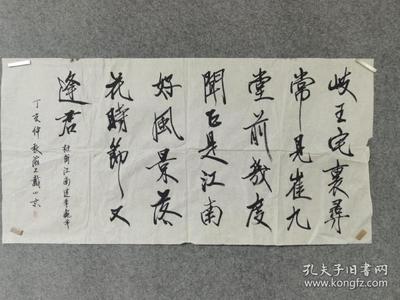 岐王宅裏尋
常見崔九
堂前幾度
聞正是江南
好風景落
花時節又
逢君
杜甫江南逢李龜年
丁亥仲秋
孔夫子旧书网
www.kongfz.com